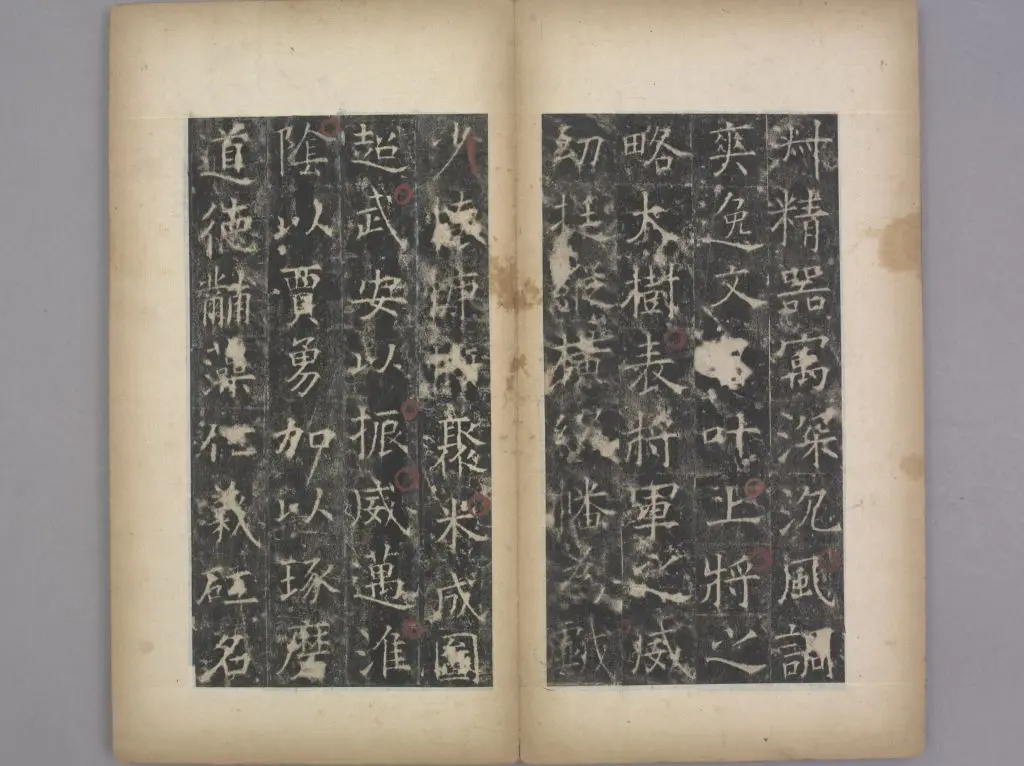 精器寓深沉風調
爽逸文叶上將之
略大樹表將軍之威
幼挺縱橫幡
少懷聚米成圖
超武安以振威邁淮
陰以賈勇加以琢磨
道德黼藻仁義砥名